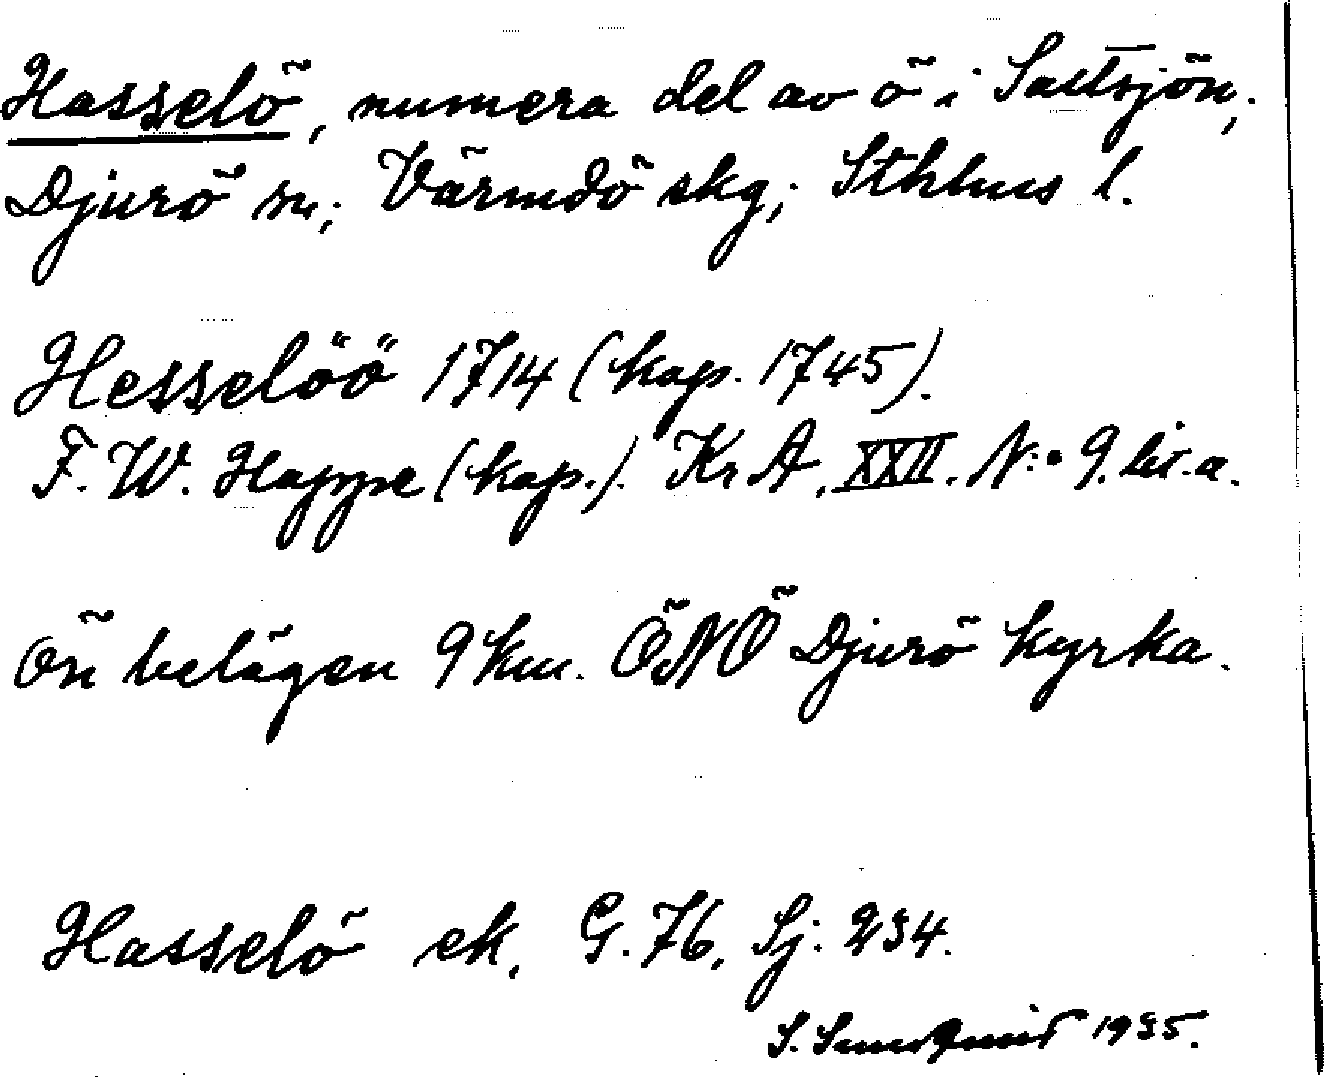 Hasselö, numera del av ö i Saltsjön,
Djurö sn; Värmdö skg; Sthlms l.
Hesselöö 1714 (kap. 1745).
F. W. Happe (kap.). Kr A, XXII. N:o 9. lit. a.
Ön belägen 9 km. ÖNÖ Djurö kyrka.
Hasselö ek. G. 76, Sj: 234.
S. Sundquist 1935.